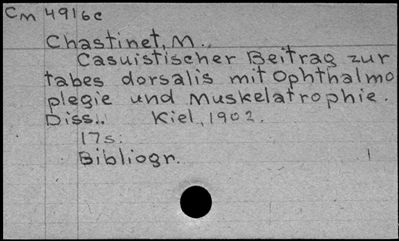 Cm 4916c
Chastinet, M.
Casuistischer Beitrag zur
tabes dorsalis mit Ophthalmo
plegie und Muskelatrophie.
Diss.. Kiel, 1902.
17s.
Bibliogr. 1